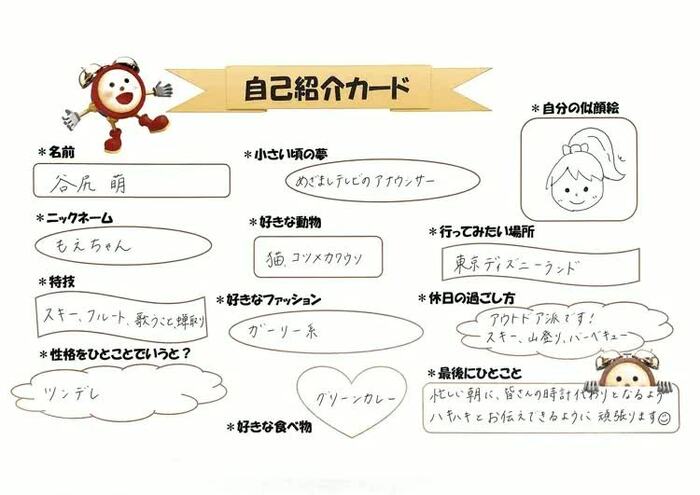 自己紹介カード
＊自分の似顔絵
＊名前
谷尻 萌
＊小さい頃の夢
めざましテレビのアナウンサー
＊ニックネーム
もえちゃん
＊好きな動物
猫、コツメカワウソ
＊行ってみたい場所
東京ディズニーランド
＊特技
スキー、フルート、歌うこと、蝉取り
＊好きなファッション
ガーリー系
＊休日の過ごし方
アウトドア派です！
スキー、山登り、バーベキュー
＊性格をひとことでいうと？
ツンデレ
＊好きな食べ物
グリーンカレー
＊最後にひとこと
忙しい朝に、皆さんの時計代わりとなるよう
ハキハキとお伝えできるように頑張ります